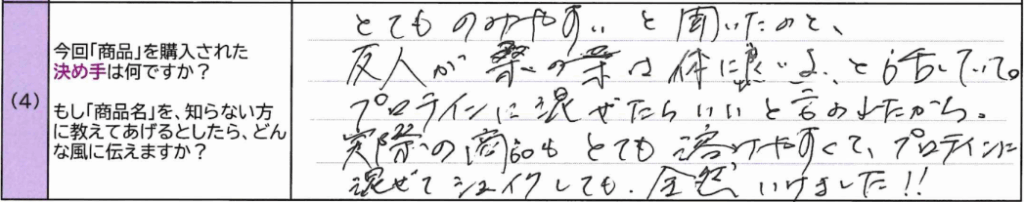 (4)
今回「商品」を購入された
決め手は何ですか?
もし「商品名」を、知らない方
に教えてあげるとしたら、どん
な風に伝えますか?
とても のみやすい と 聞いたのと、
友人が 桑の葉は 体に良いよ、と話していて。
プロテインに混ぜたらいいと言われたから。
実際の商品も とても 溶けやすくて、プロテインに
混ぜて シェイクしても、全然、いけました!!